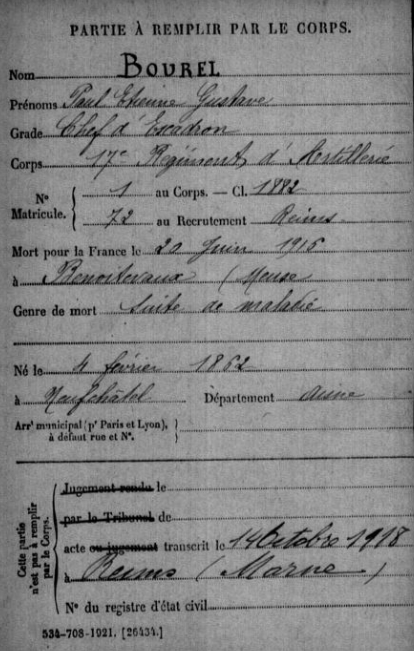 PARTIE À REMPLIR PAR LE CORPS.
Nom BOUREL
Prénoms Paul Etienne Gustave
Grade Chef d'Escadron
Corps 17e Régiment d'Artillerie
N° Matricule. { 1 au Corps. — Cl. 1882
72 au Recrutement Reims
Mort pour la France le 20 Juin 1916
à Benoitevaux (Meuse
Genre de mort Suite de maladie
Né le 4 février 1862
à Neufchâtel Département Aisne
Arrt municipal (pr Paris et Lyon), à défaut rue et N°. }
Cette partie n'est pas à remplir par le Corps.
Jugement rendu le
par le Tribunal de
acte ou jugement transcrit le 14 Octobre 1918
à Reims (Marne)
N° du registre d'état civil
534-708-1921. [26434.]